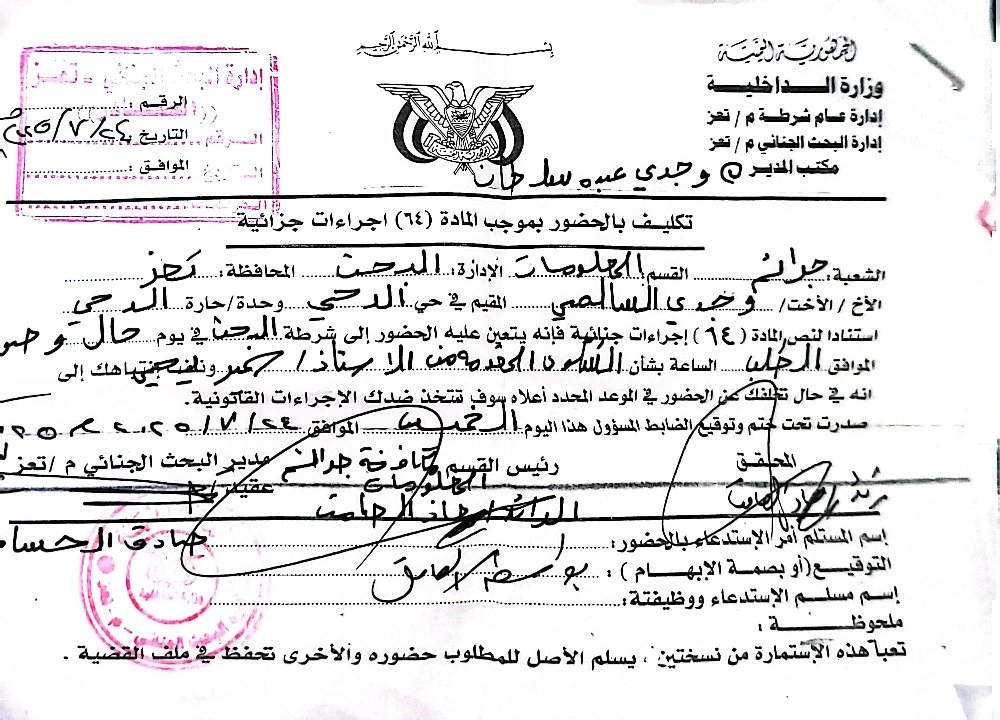 بسم الله الرحمن الرحيم
الجمهورية اليمنية
وزارة الداخلية
إدارة عام شرطة م / تعز
إدارة البحث الجنائي م / تعز
مكتب المدير
وجدي عبده سلطان
إدارة البحث الجنائي - تعز
الرقم :
التاريخ ٢٤ / ٧ /
الموافق :
تكليف بالحضور بموجب المادة (٦٤) اجراءات جزائية
الشعبة: جرائم القسم المعلومات الإدارة: البحث المحافظة: تعز
الأخ / الأخت/ وجدي السالمي المقيم في حي الدحي وحدة/حارة الدحي
استنادا لنص المادة (٦٤) إجراءات جنائية فإنه يتعين عليه الحضور إلى شرطة البحث في يوم حال
الموافق الطلب الساعة بشأن الشكوى المقدمة من الاستاذ/ ونلفت إنتباهك إلى
انه في حال تخلفك عن الحضور في الموعد المحدد أعلاه سوف تتخذ ضدك الإجراءات القانونية.
صدرت تحت ختم وتوقيع الضابط المسؤول هذا اليوم الخميس الموافق ٢٤ / ٧ / ٢٠٢٥م
المحقق
رئيس القسم مكافحة جرائم المعلومات
مدير البحث الجنائي م / تعز
عقيد /
إسم المستلم أمر الإستدعاء بالحضور:
التوقيع(أو بصمة الإبهام) :
إسم مسلم الإستدعاء ووظيفتة:
ملحوظة :
تعبأ هذه الإستمارة من نسختين ، يسلم الأصل للمطلوب حضوره والأخرى تحفظ في ملف القضية .